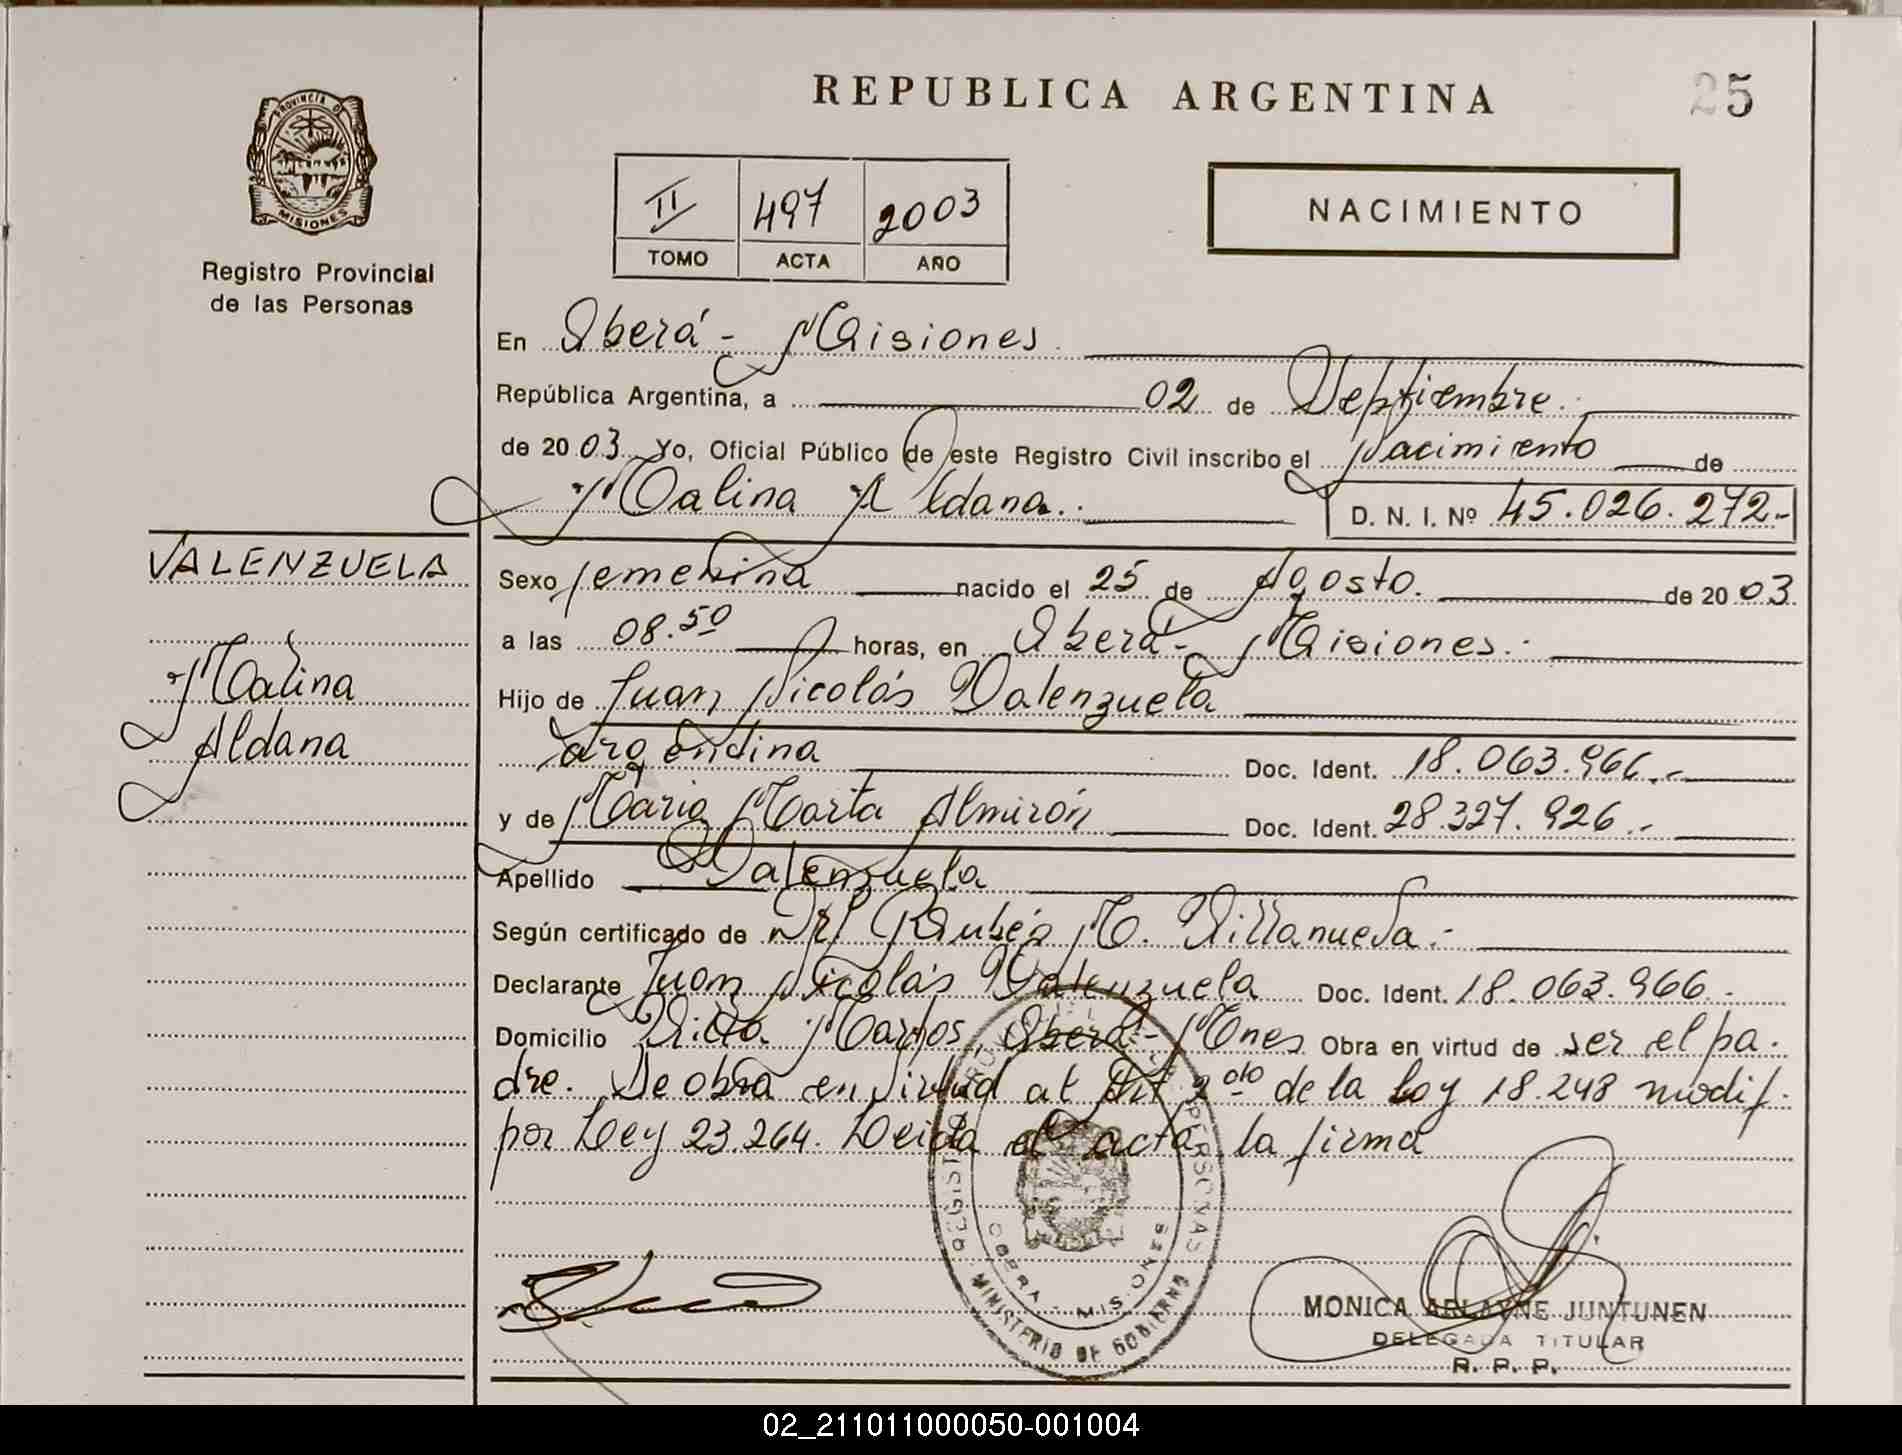 REPUBLICA ARGENTINA
25
PROVINCIA DE
MISIONES
Registro Provincial
de las Personas
II 497 2003
TOMO ACTA AÑO
NACIMIENTO
En Oberá - Misiones
República Argentina, a 02 de Septiembre.
de 2003 Yo, Oficial Público de este Registro Civil inscribo el Nacimiento de
Malina Aldana.
D. N. I. Nº 45.026.272-
VALENZUELA
Malina
Aldana
Sexo femenina nacido el 25 de Agosto. de 2003
a las 08.50 horas, en Oberá - Misiones.-
Hijo de Juan Nicolás Valenzuela
argentina Doc. Ident. 18.063.966.-
y de María Marta Almirón Doc. Ident. 28.327.926.-
Apellido Valenzuela
Según certificado de Dr. Rubén M. Villanueva.-
Declarante Juan Nicolás Valenzuela Doc. Ident. 18.063.966.-
Domicilio Villa Martos, Oberá - Mnes Obra en virtud de ser el pa-
dre. De obra en virtud al Art 2do de la Ley 18.248 modif.
por Ley 23.264. Leida el acta la firma
REGISTRO PROVINCIAL DE LAS PERSONAS
OBERA - MISIONES
MINISTERIO DE GOBIERNO
MONICA ARLAYNE JUNTUNEN
DELEGADA TITULAR
R. P. P.
02_211011000050-001004